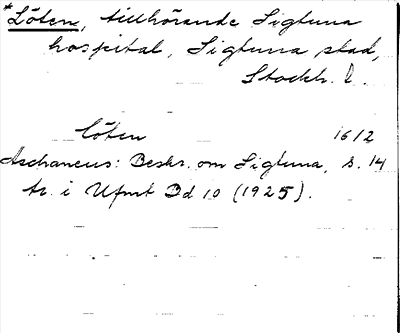 *Löten, tillhörande Sigtuna
hospital, Sigtuna stad,
Stockh. l.
Löten 1612
Aschaneus: Beskr. om Sigtuna, s. 14
tr. i Ufmt Bd 10 (1925).